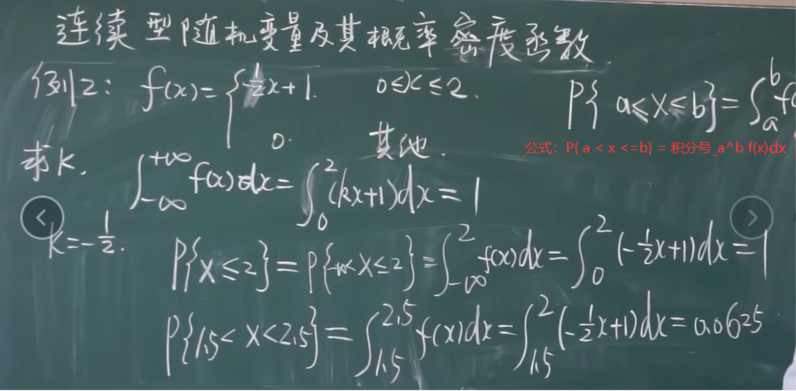 连续型随机变量及其概率密度函数
例2: f(x)= { -1/2x+1. 0≤x≤2.
0. 其他.
P{ a≤X≤b}=∫_a^b f(
公式: P{ a < x <=b} = 积分号_a^b f(x)dx
求k. ∫_{-∞}^{+∞} f(x)dx = ∫_0^2 (kx+1)dx = 1
k=-1/2.
P{X≤2} = P{-∞<X≤2} = ∫_{-∞}^2 f(x)dx = ∫_0^2 (-1/2x+1)dx = 1
P{1.5<X<2.5} = ∫_{1.5}^{2.5} f(x)dx = ∫_{1.5}^2 (-1/2x+1)dx = 0.0625